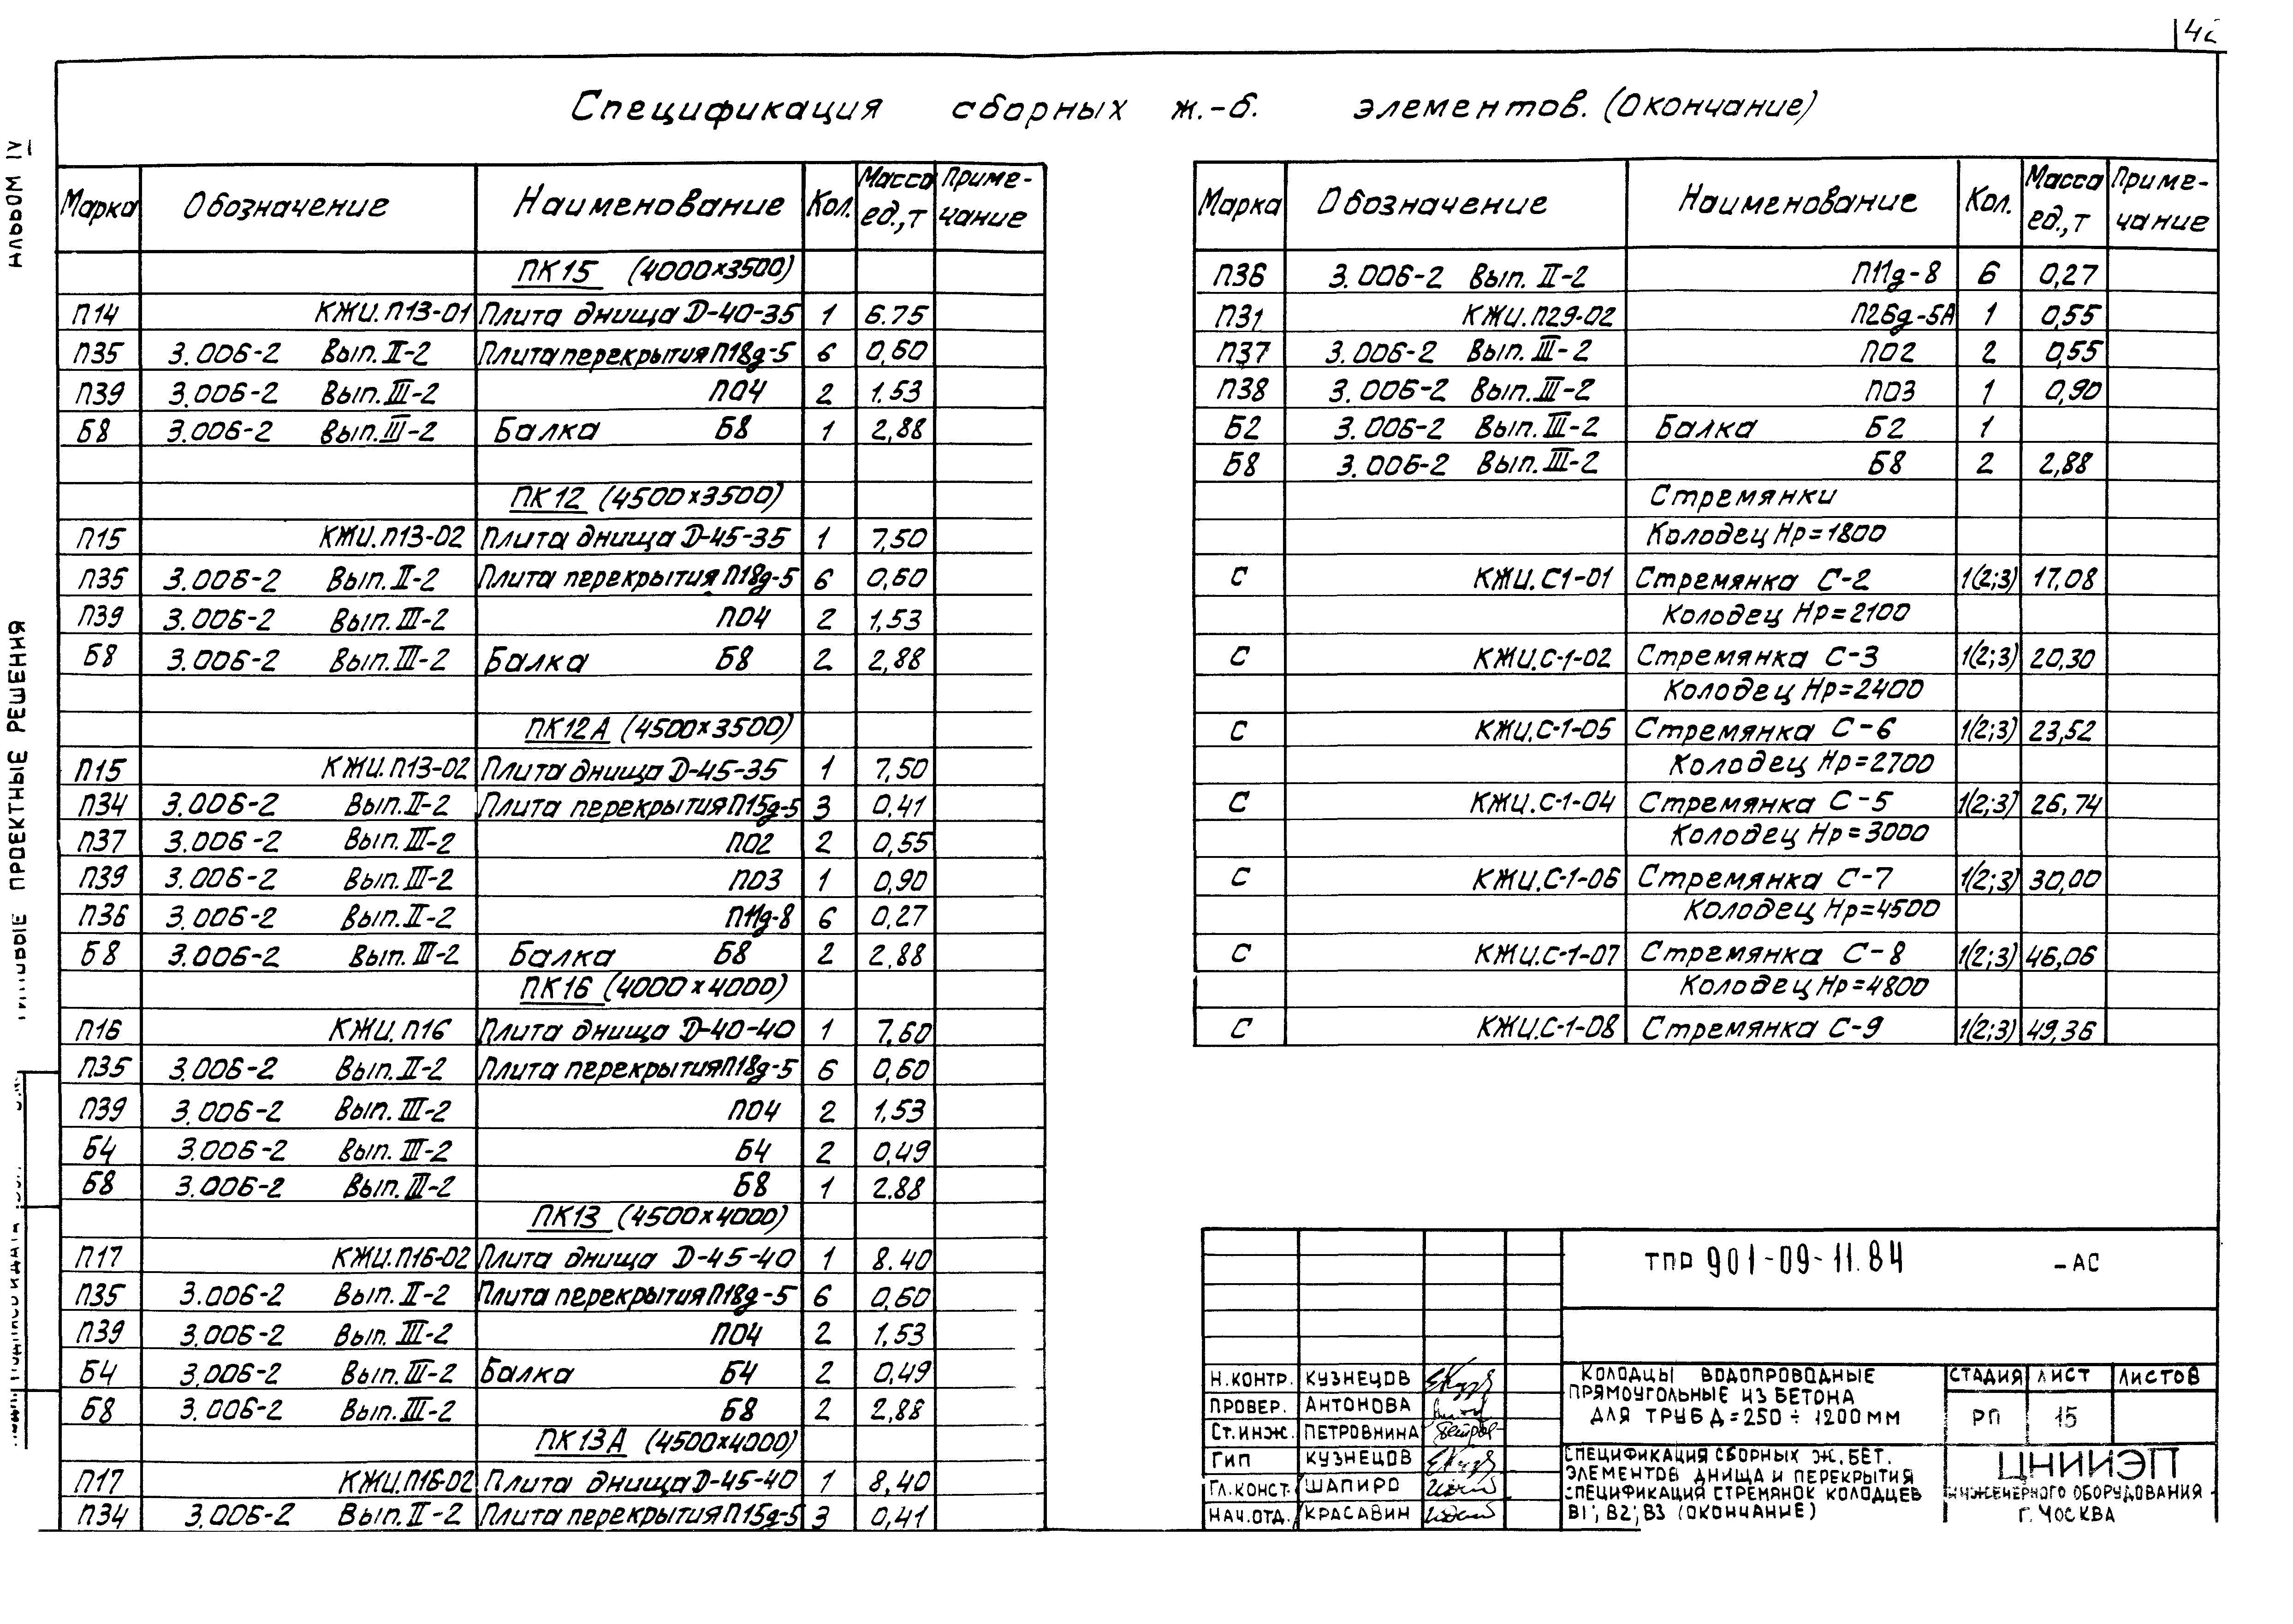 42
Спецификация сборных ж.-б. элементов. (Окончание)
АЛЬБОМ IV
ПРОЕКТНЫЕ РЕШЕНИЯ
Марка Обозначение Наименование Кол. Масса ед.,т Приме-чание
ПК15 (4000×3500)
П14 КЖИ.П13-01 Плита днища Д-40-35 1 6.75
П35 3.006-2 Вып. II-2 Плита перекрытия П18д-5 6 0,60
П39 3.006-2 Вып. III-2 ПО4 2 1.53
Б8 3.006-2 Вып. III-2 Балка Б8 1 2,88
ПК12 (4500×3500)
П15 КЖИ.П13-02 Плита днища Д-45-35 1 7,50
П35 3.006-2 Вып. II-2 Плита перекрытия П18д-5 6 0,60
П39 3.006-2 Вып. III-2 ПО4 2 1,53
Б8 3.006-2 Вып. III-2 Балка Б8 2 2,88
ПК12А (4500×3500)
П15 КЖИ.П13-02 Плита днища Д-45-35 1 7,50
П34 3.006-2 Вып. II-2 Плита перекрытия П15д-5 3 0,41
П37 3.006-2 Вып. III-2 ПО2 2 0,55
П39 3.006-2 Вып. III-2 ПО3 1 0,90
П36 3.006-2 Вып. II-2 П11д-8 6 0,27
Б8 3.006-2 Вып. III-2 Балка Б8 2 2,88
ПК16 (4000×4000)
П16 КЖИ.П16 Плита днища Д-40-40 1 7,60
П35 3.006-2 Вып. II-2 Плита перекрытия П18д-5 6 0,60
П39 3.006-2 Вып. III-2 ПО4 2 1,53
Б4 3.006-2 Вып. III-2 Б4 2 0,49
Б8 3.006-2 Вып. III-2 Б8 1 2.88
ПК13 (4500×4000)
П17 КЖИ.П16-02 Плита днища Д-45-40 1 8.40
П35 3.006-2 Вып. II-2 Плита перекрытия П18д-5 6 0,60
П39 3.006-2 Вып. III-2 ПО4 2 1,53
Б4 3.006-2 Вып. III-2 Балка Б4 2 0,49
Б8 3.006-2 Вып. III-2 Б8 2 2,88
ПК13А (4500×4000)
П17 КЖИ.П16-02 Плита днища Д-45-40 1 8,40
П34 3.006-2 Вып. II-2 Плита перекрытия П15д-5 3 0,41
Марка Обозначение Наименование Кол. Масса ед.,т Приме-чание
П36 3.006-2 Вып. II-2 П11д-8 6 0,27
П31 КЖИ.П29-02 П26д-5А 1 0,55
П37 3.006-2 Вып. III-2 ПО2 2 0,55
П38 3.006-2 Вып. III-2 ПО3 1 0,90
Б2 3.006-2 Вып. III-2 Балка Б2 1
Б8 3.006-2 Вып. III-2 Б8 2 2,88
Стремянки
Колодец Нр=1800
С КЖИ.С1-01 Стремянка С-2 1(2;3) 17,08
Колодец Нр=2100
С КЖИ.С-1-02 Стремянка С-3 1(2;3) 20,30
Колодец Нр=2400
С КЖИ.С-1-05 Стремянка С-6 1(2;3) 23,52
Колодец Нр=2700
С КЖИ.С-1-04 Стремянка С-5 1(2;3) 26,74
Колодец Нр=3000
С КЖИ.С-1-06 Стремянка С-7 1(2;3) 30,00
Колодец Нр=4500
С КЖИ.С-1-07 Стремянка С-8 1(2;3) 46,06
Колодец Нр=4800
С КЖИ.С-1-08 Стремянка С-9 1(2;3) 49,36
ТПР 901-09-11.84 -АС
Н.КОНТР. КУЗНЕЦОВ
ПРОВЕР. АНТОНОВА
Ст.ИНЖ. ПЕТРОВНИНА
ГИП КУЗНЕЦОВ
ГЛ.КОНСТ. ШАПИРО
НАЧ.ОТД. КРАСАВИН
КОЛОДЦЫ ВОДОПРОВОДНЫЕ
ПРЯМОУГОЛЬНЫЕ ИЗ БЕТОНА
ДЛЯ ТРУБ Д=250÷1200ММ
СТАДИЯ ЛИСТ ЛИСТОВ
РП 15
СПЕЦИФИКАЦИЯ СБОРНЫХ Ж.БЕТ.
ЭЛЕМЕНТОВ ДНИЩА И ПЕРЕКРЫТИЯ
СПЕЦИФИКАЦИЯ СТРЕМЯНОК КОЛОДЦЕВ
В1; В2; В3 (ОКОНЧАНИЕ)
ЦНИИЭП
ИНЖЕНЕРНОГО ОБОРУДОВАНИЯ
Г. МОСКВА